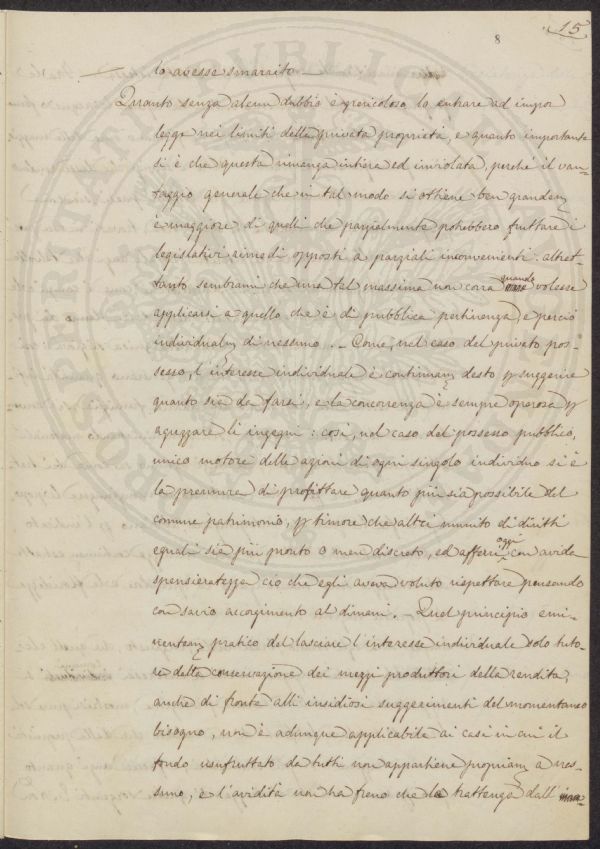 15
8
lo avesse smarrito —
Quanto senza alcun dubbio è pericoloso lo entrare ad impor
legge nei limiti della privata proprietà, e quanto importante
si è che questa rimanga intiera ed inviolata, perché il van-
taggio generale che in tal modo si ottiene ben grandem
è maggiore di quelli che parzialmente potrebbero fruttare i
legislativi rimedi opposti a parziali inconvenienti: altret-
tanto sembrami che una tal massima non corra quando volesse
applicarsi a quello che è di pubblica pertinenza, e perciò
individualm di nessuno. — Come, nel caso del privato pos-
sesso, l'interesse individuale è continuam desto p suggerire
quanto sia da farsi, e la concorrenza è sempre operosa p
aguzzare li ingegni: così, nel caso del possesso pubblico,
unico motore delle azioni di ogni singolo individuo si è
la premura di profittare quanto più sia possibile del
comune patrimonio, p timore che altri munito di diritti
eguali sia più pronto o men discreto, ed afferri oggi con avida
spensieratezza ciò che egli aveva voluto rispettare pensando
con savio accorgimento al dimani. — Quel principio emi-
nentem pratico del lasciare l'interesse individuale solo tuto-
re della conservazione dei mezzi produttori della rendita,
anche di fronte alli insidiosi suggerimenti del momentaneo
bisogno, non è adunque applicabile ai casi in cui il
fondo usufruttato da tutti non appartiene propriam a nes-
suno, e l'avidità non ha freno che la trattenga dall'